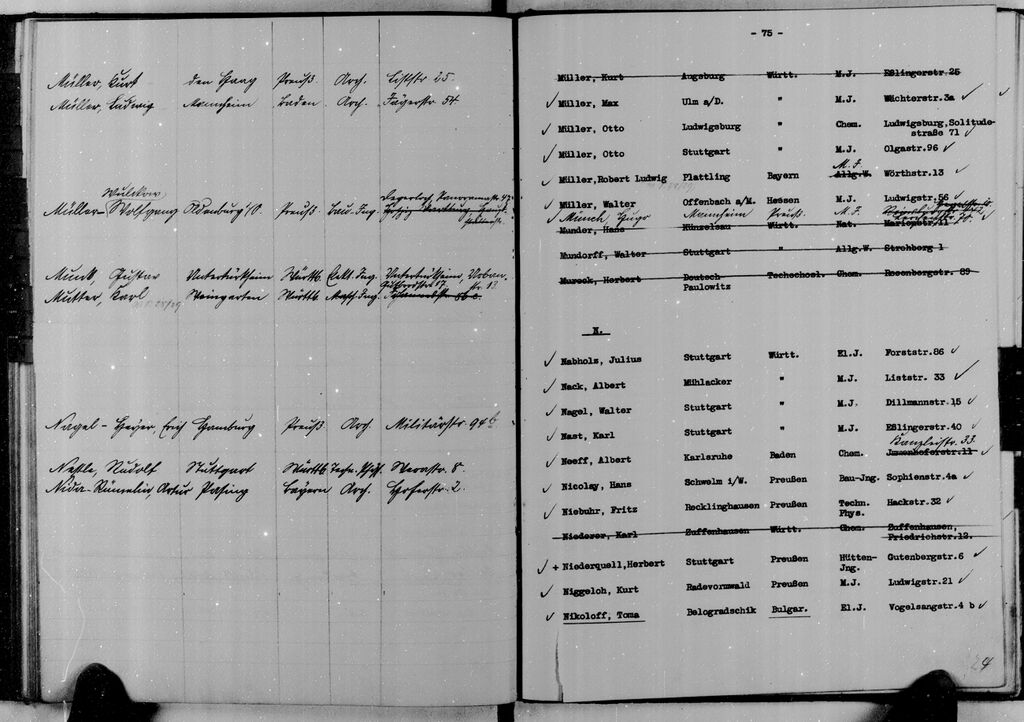 Müller, Curt den Haag Preuß. Arch. Liststr. 25.
Müller, Ludwig Mannheim Baden Arch. Jägerstr. 54
Wulckow
Müller-Wolfgang Oldenburg i/O. Preuß. Bau-Ing.
Munk, Gustav Untertürkheim Württb. Elkt. Ing. Untertürkheim, Urban-
str. 13
Mutter, Karl Weingarten Württb. Masch. Ing.
Nagel-Heyer, Erich Hamburg Preuß. Arch. Militärstr. 94
Nestle, Rudolf Stuttgart Württb. Techn. Phys. Werastr. 8.
Nida-Rümelin, Artur Pasing Bayern Arch. 2.
- 75 -
Müller, Kurt Augsburg Württ. M.J. Eßlingerstr. 25
Müller, Max Ulm a/D. " M.J. Wächterstr. 3a
Müller, Otto Ludwigsburg " Chem. Ludwigsburg, Solitude-
straße 71
Müller, Otto Stuttgart " M.J. Olgastr. 96
M.J.
Müller, Robert Ludwig Plattling Bayern Allg.W. Wörthstr. 13
Müller, Walter Offenbach a/M. Hessen M.J. Ludwigstr. 56
Münch Hugo Mannheim Preuß. M.J.
Munder, Hans Künzelsau Württ. Nat.
Mundorff, Walter Stuttgart " Allg.W. Strohberg 1
Mureck, Herbert Deutsch Techechosl. Chem. Rosenbergstr. 89
Paulowitz
N.
Nabholz, Julius Stuttgart Württ. El.J. Forststr. 86
Nack, Albert Mühlacker " M.J. Liststr. 33
Nagel, Walter Stuttgart " M.J. Dillmannstr. 15
Nast, Karl Stuttgart " M.J. Eßlingerstr. 40
Kanzleistr. 33.
Neeff, Albert Karlsruhe Baden Chem. Jmmenhoferstr. 11
Nicolay, Hans Schwelm i/W. Preußen Bau-Jng. Sophienstr. 4a
Niebuhr, Fritz Recklinghausen Preußen Techn. Hackstr. 32
Phys.
Niederer, Karl Zuffenhausen Württ. Chem. Zuffenhausen,
Friedrichstr. 12.
+ Niederquell, Herbert Stuttgart Preußen Hütten- Gutenbergstr. 6
Jng.
Niggeloh, Kurt Radevormwald Preußen M.J. Ludwigstr. 21
Nikoloff, Toma Belogradschik Bulgar. El.J. Vogelsangstr. 4 b
24